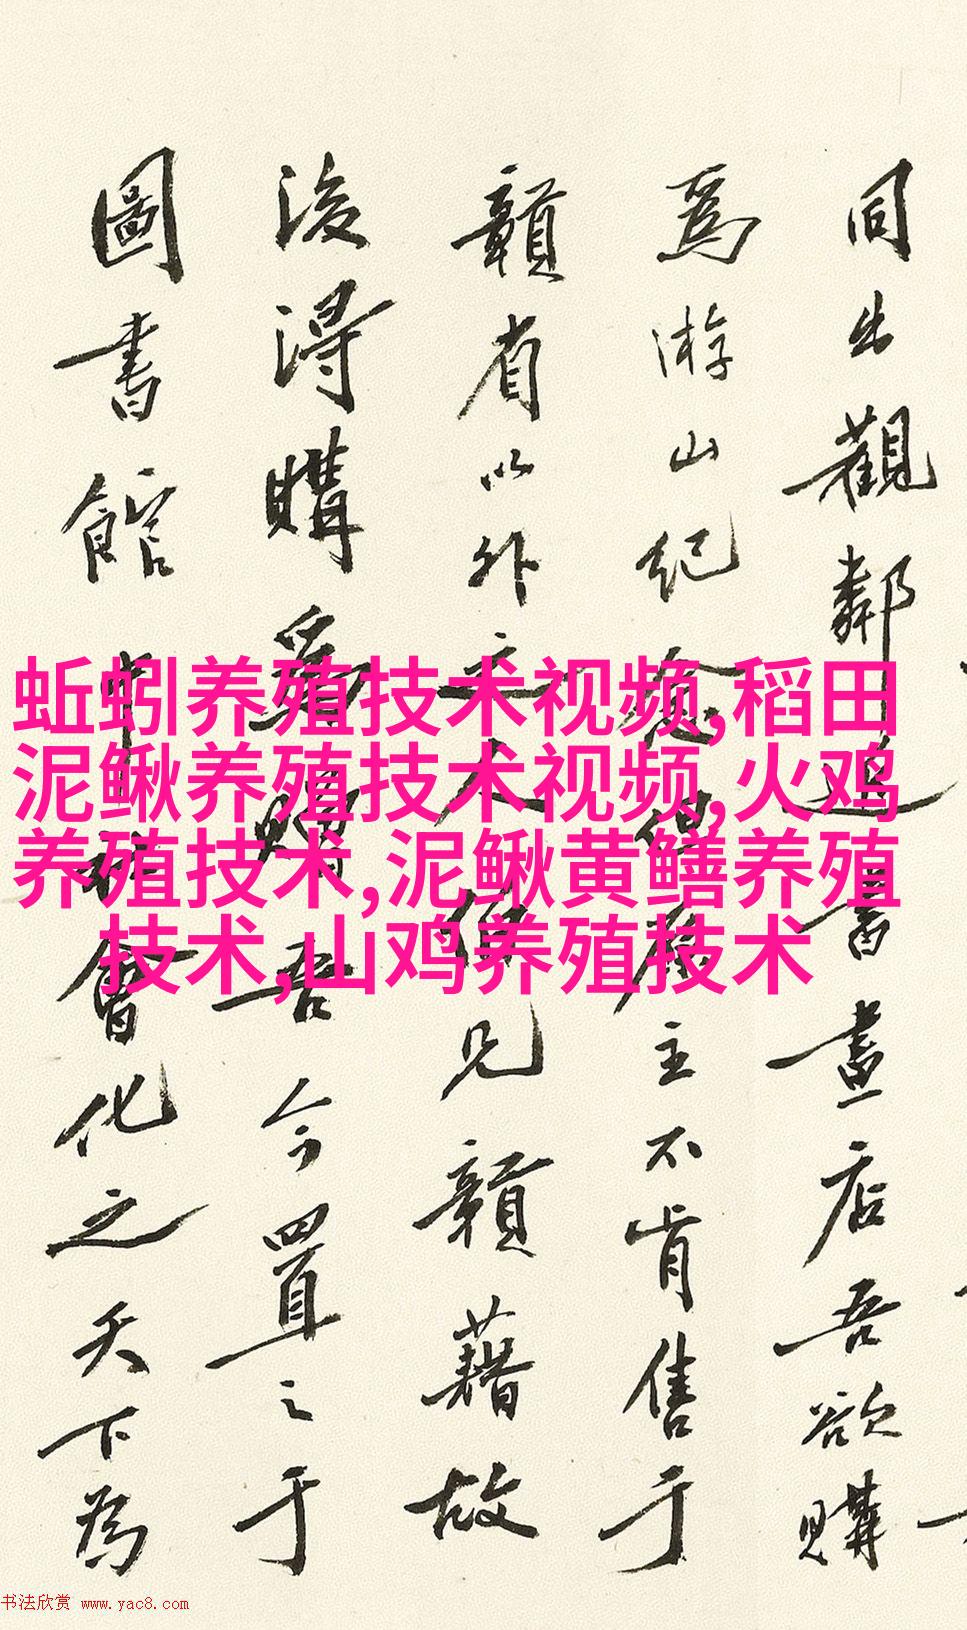 同出觀鄰近書畫店吾欲購
爲游山紀念但店主不肯售于
贛省以外之人但見贛藉故
後得購爲贈吾今置之于
圖書館中會化之天下為
蚯蚓养殖技术视频,稻田
泥鳅养殖技术视频,火鸡
养殖技术,泥鳅黄鳝养殖
技术,山鸡养殖技术
书法欣赏 www.yac8.com